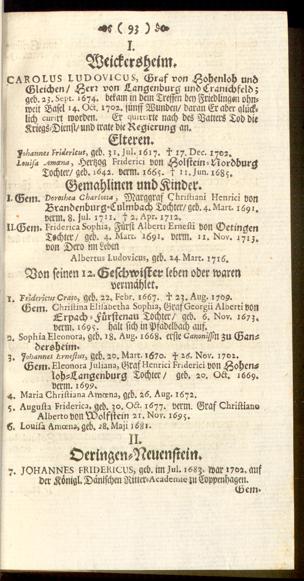 ( 93 )
I.
Weickersheim.
CAROLUS LUDOVICUS, Graf von Hohenloh und
Gleichen/ Herr von Langenburg und Cranichfeld;
geb. 23. Sept. 1674. bekam in dem Treffen bey Friedlingen ohn-
weit Basel 14. Oct. 1702. fünff Wunden/ daran Er aber glück-
lich curirt worden. Er quittirte nach des Vatters Tod die
Kriegs-Dienst/ und trate die Regierung an.
Elteren.
Johannes Fridericus, geb. 31. Jul. 1617. † 17. Dec. 1702.
Louisa Amœna, Hertzog Friderici von Holstein-Nordburg
Tochter/ geb. 1642. verm. 1665. † 11. Jun. 1685.
Gemahlinen und Kinder.
I. Gem. Dorothea Charlotta, Marggraf Christiani Henrici von
Brandenburg-Culmbach Tochter/ geb. 4. Mart. 1691.
verm. 8. Jul. 1711. † 2. Apr. 1712.
II. Gem. Friderica Sophia, Fürst Alberti Ernesti von Oetingen
Tochter/ geb. 4. Mart. 1691. verm. 11. Nov. 1713.
von Dero im Leben
Albertus Ludovicus, geb. 24. Mart. 1716.
Von seinen 12. Geschwister leben oder waren
vermählet.
1. Fridericus Crato, geb. 22. Febr. 1667. † 23. Aug. 1709.
Gem. Christina Elisabetha Sophia, Graf Georgii Alberti von
Erpach-Fürstenau Tochter/ geb. 6. Nov. 1673.
verm. 1695. hält sich in Pfädelbach auf.
2. Sophia Eleonora, geb. 18. Aug. 1668. erste Canonissin zu Gan-
dersheim.
3. Johannes Ernestus, geb. 20. Mart. 1670. † 26. Nov. 1702.
Gem. Eleonora Juliana, Graf Henrici Friderici von Hohen-
loh-Langenburg Tochter/ geb. 20. Oct. 1669.
verm. 1699.
4. Maria Christiana Amœna, geb. 26. Aug. 1672.
5. Augusta Friderica, geb. 30. Oct. 1677. verm. Graf Christiano
Alberto von Wolffstein 21. Nov. 1695.
6. Louisa Amœna, geb. 28. Maji 1681.
II.
Oeringen-Neuenstein.
7. JOHANNES FRIDERICUS, geb. im Jul. 1683. war 1702. auf
der Königl. Dänischen Ritter-Academie zu Coppenhagen.
Gem.